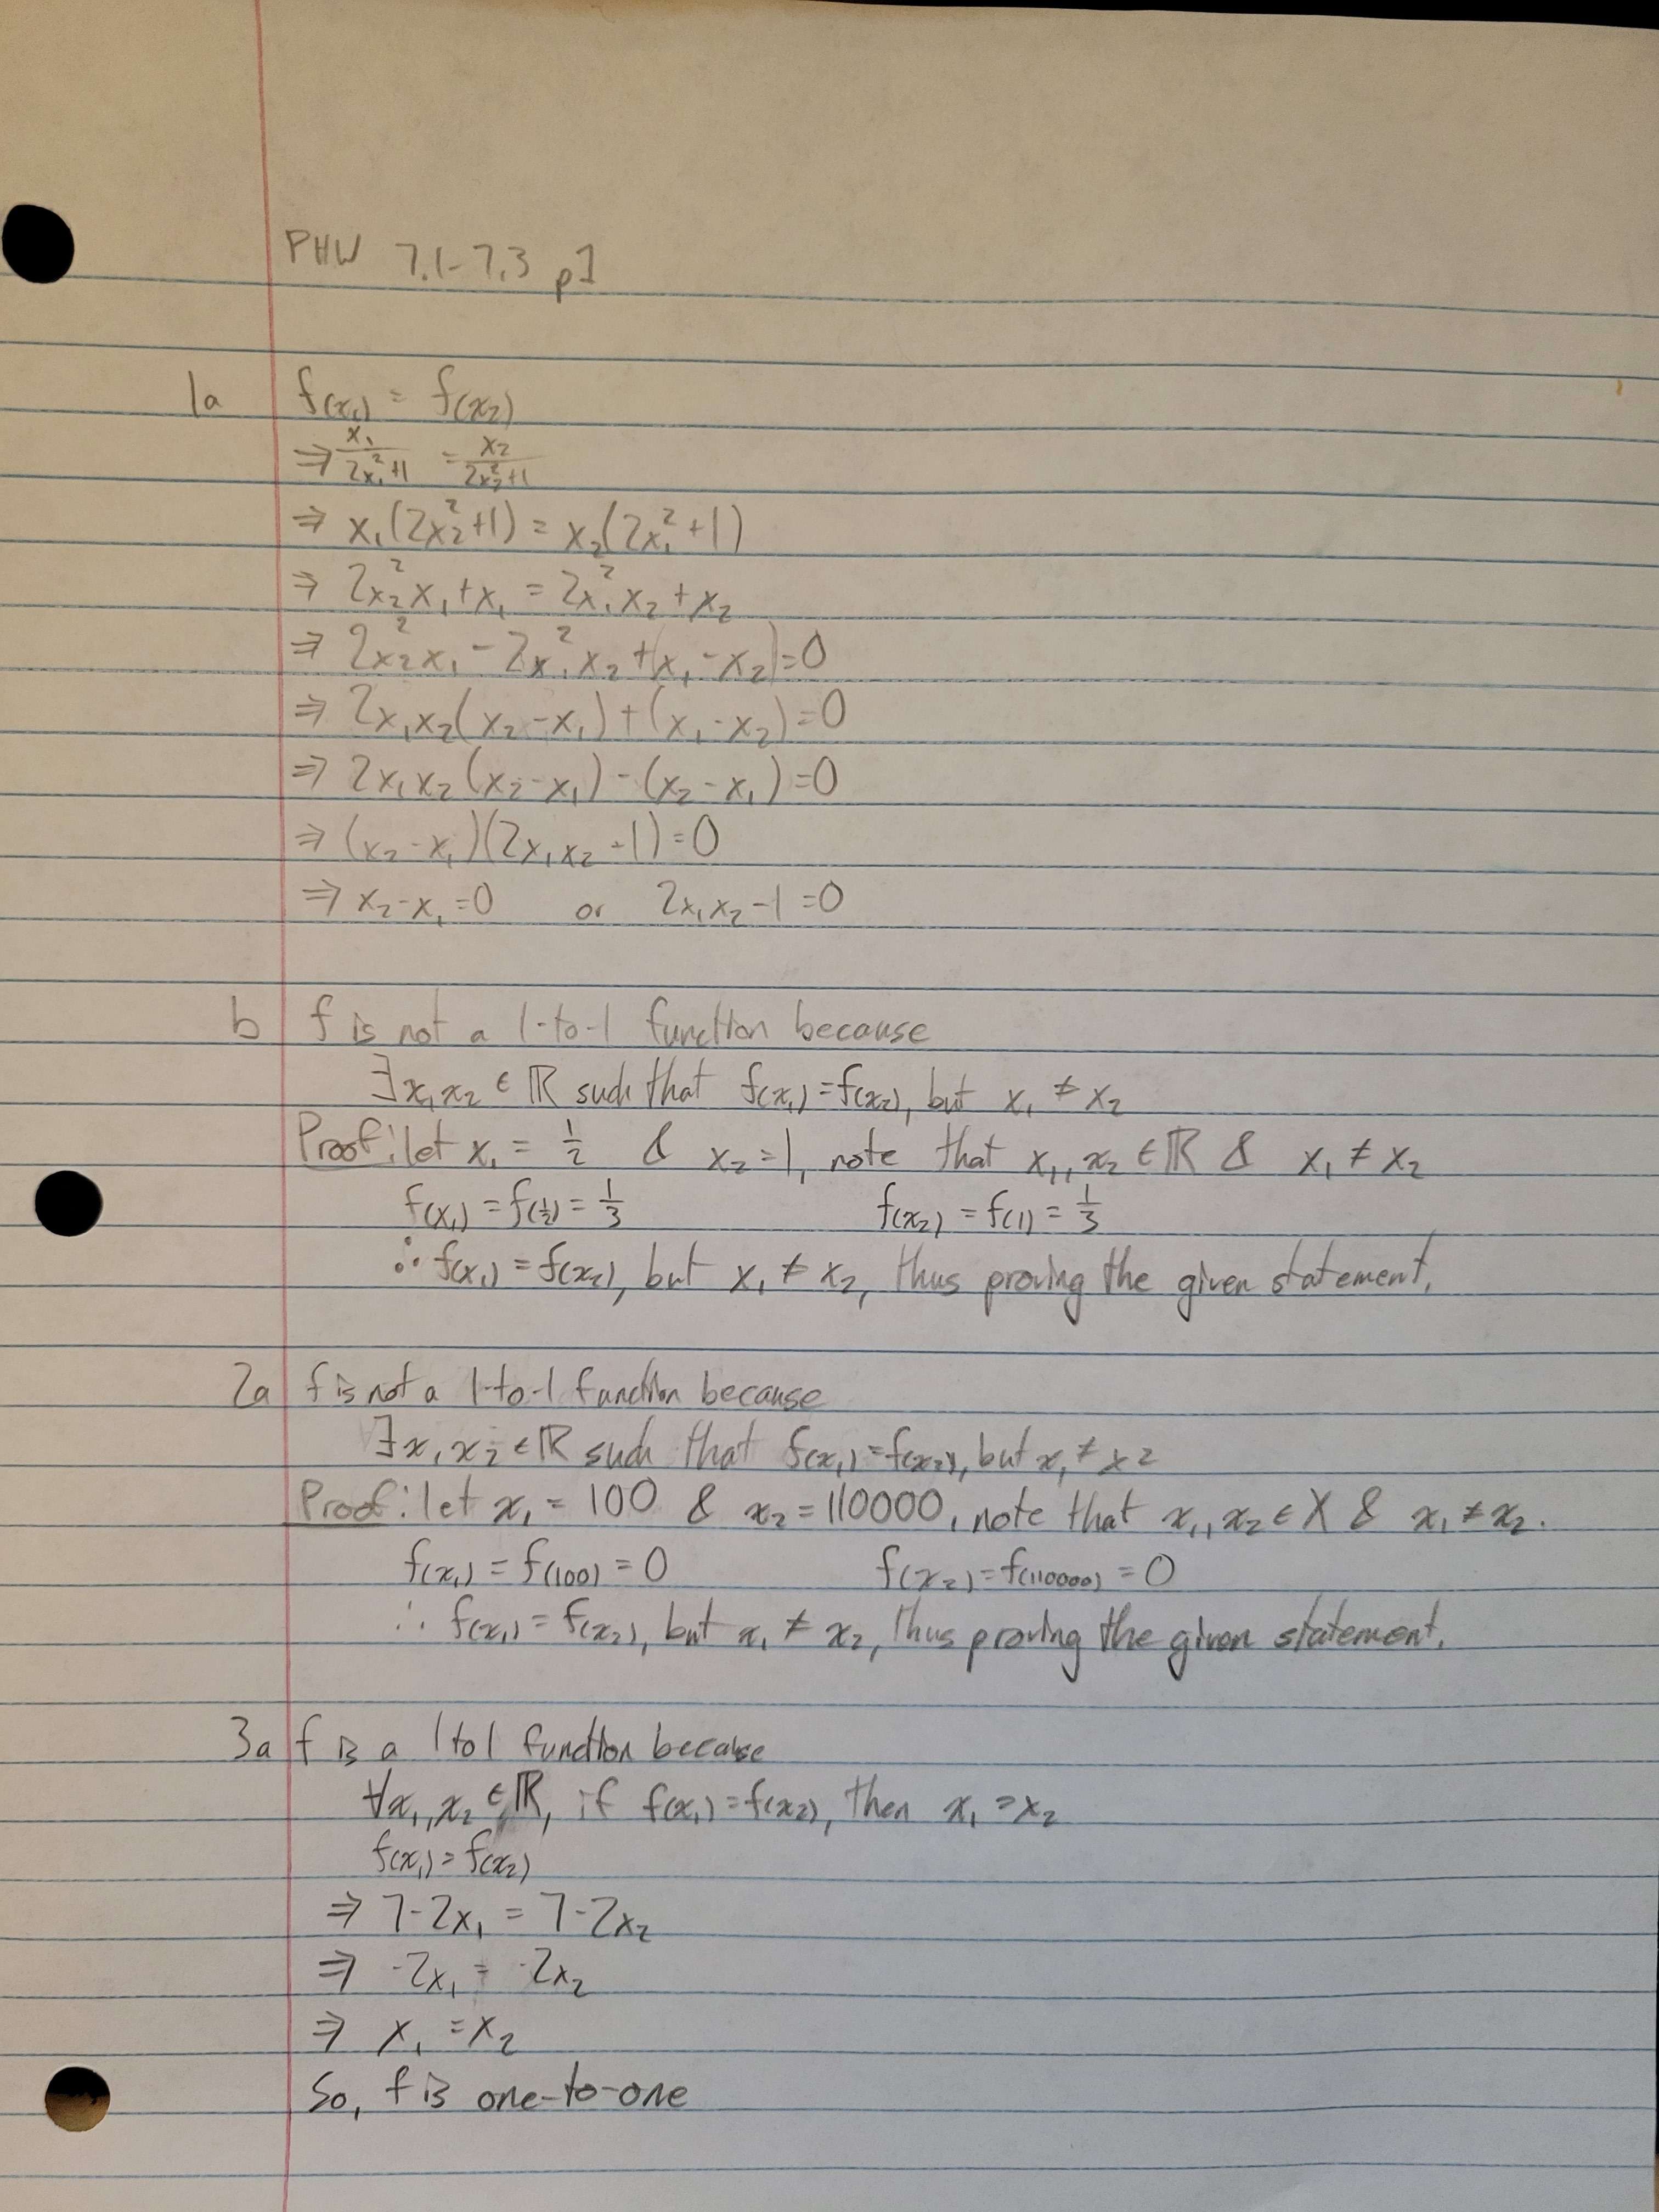 PHW 7.1-7.3 p1
1a f(x₁) = f(x₂)
⇒ x₁/(2x₁²+1) = x₂/(2x₂²+1)
⇒ x₁(2x₂²+1) = x₂(2x₁²+1)
⇒ 2x₂²x₁+x₁ = 2x₁²x₂+x₂
⇒ 2x₂²x₁-2x₁²x₂+(x₁-x₂)=0
⇒ 2x₁x₂(x₂-x₁)+(x₁-x₂)=0
⇒ 2x₁x₂(x₂-x₁)-(x₂-x₁)=0
⇒ (x₂-x₁)(2x₁x₂-1)=0
⇒ x₂-x₁=0 or 2x₁x₂-1=0
b f is not a 1-to-1 function because
∃x₁x₂ ∈ ℝ such that f(x₁)=f(x₂), but x₁ ≠ x₂
Proof: let x₁ = 1/2 & x₂=1, note that x₁,x₂ ∈ ℝ & x₁ ≠ x₂
f(x₁) = f(1/2) = 1/3 f(x₂) = f(1) = 1/3
∴ f(x₁) = f(x₂), but x₁ ≠ x₂, thus proving the given statement.
2a f is not a 1-to-1 function because
∃x₁x₂ ∈ ℝ such that f(x₁)=f(x₂), but x₁ ≠ x2
Proof: let x₁ = 100 & x₂ = 110000, note that x₁,x₂ ∈ X & x₁ ≠ x₂.
f(x₁) = f(100) = 0 f(x₂)=f(110000) = 0
∴ f(x₁) = f(x₂), but x₁ ≠ x₂, thus proving the given statement.
3a f is a 1 to 1 function because
∀x₁,x₂ ∈ ℝ, if f(x₁)=f(x₂), then x₁ = x₂
f(x₁)=f(x₂)
⇒ 7-2x₁ = 7-2x₂
⇒ -2x₁ = -2x₂
⇒ x₁ = x₂
So, f is one-to-one